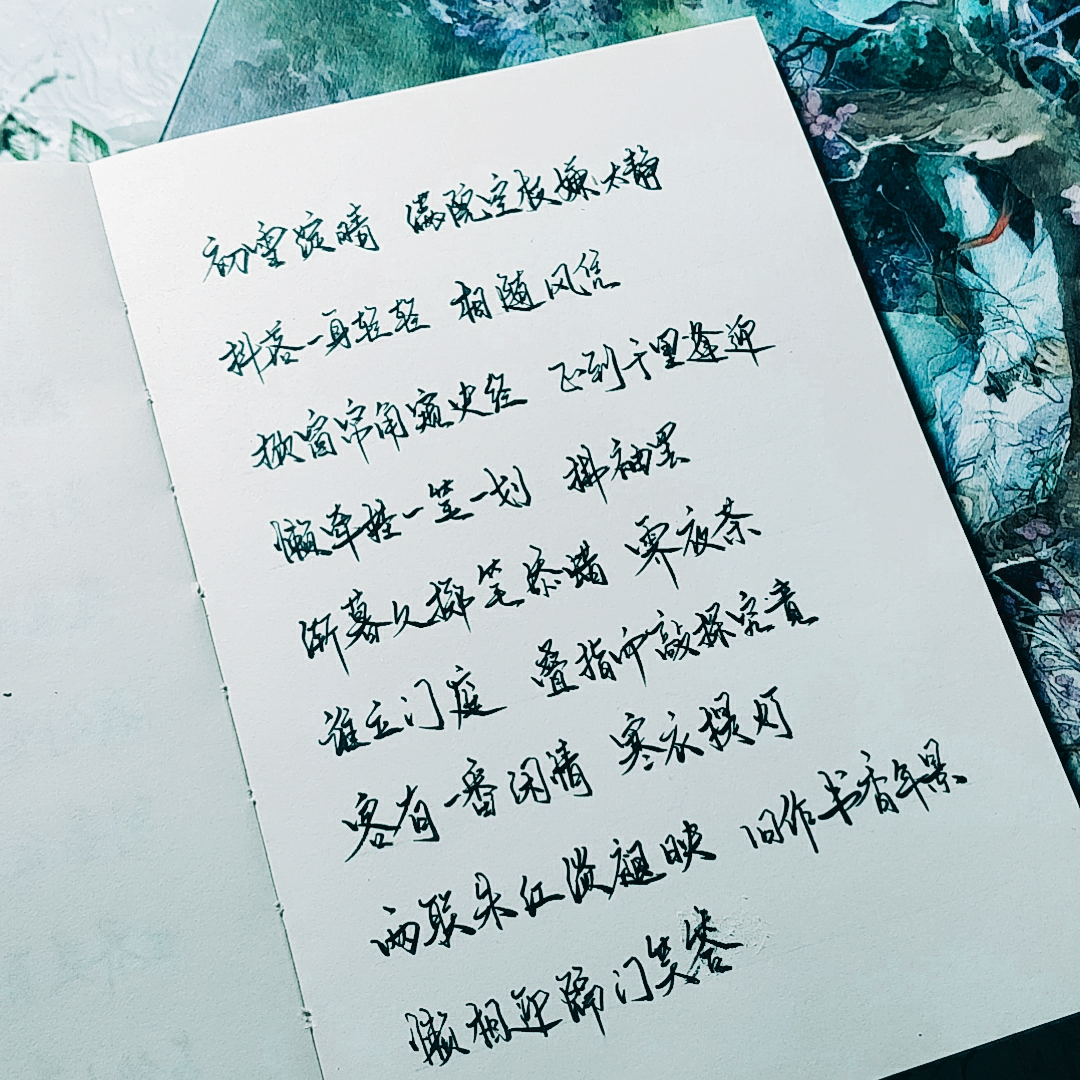 初雪淀晴 满院空枝嫌太静
抖落一身轻轻 相随风凭
掀窗帘角窥史经 飞到千里逢迎
懒牵挂一笔一划 拂袖罢
渐暮久掷笔添蜡 霁夜茶
谁立门庭 叠指叩敲探究竟
客有一番闲情 寒衣提灯
两联朱红淡题映 旧作书香年景
懒相迎隔门笑答